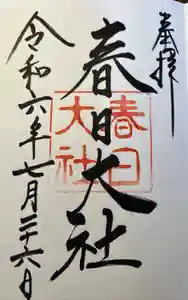 奉拝
春日大社
春日
大社
令和六年七月二十六日